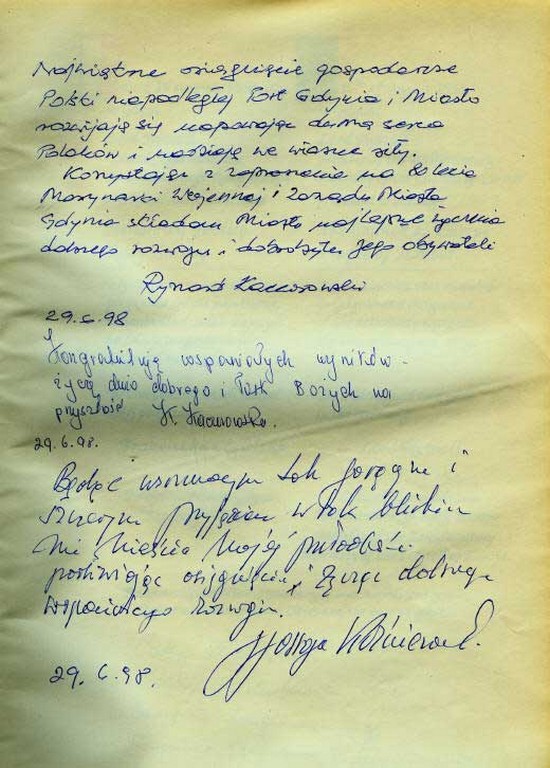 Największe osiągnięcie gospodarcze
Polski niepodległej Port Gdynia i Miasto
rozwijają się napawając dumą serca
Polaków i nadzieją we własne siły.
Korzystając z zaproszenia na 80 lecie
Marynarki Wojennej i Zarządu Miasta
Gdynia składam Miastu najlepsze życzenia
dalszego rozwoju i dobrobytu Jego obywateli
Ryszard Kaczorowski
29.6.98
Kongratuluję wspaniałych wyników -
życzę dnia dobrego i Łask Bożych na
przyszłość K. Kaczorowska.
29.6.98.
Będąc wzruszonym tak gorącym i
szczerym przyjęciem w tak bliskim
mi Mieście Mojej młodości
podziwiając osiągnięcia, życząc dalszego
wspaniałego rozwoju.
29.6.98.